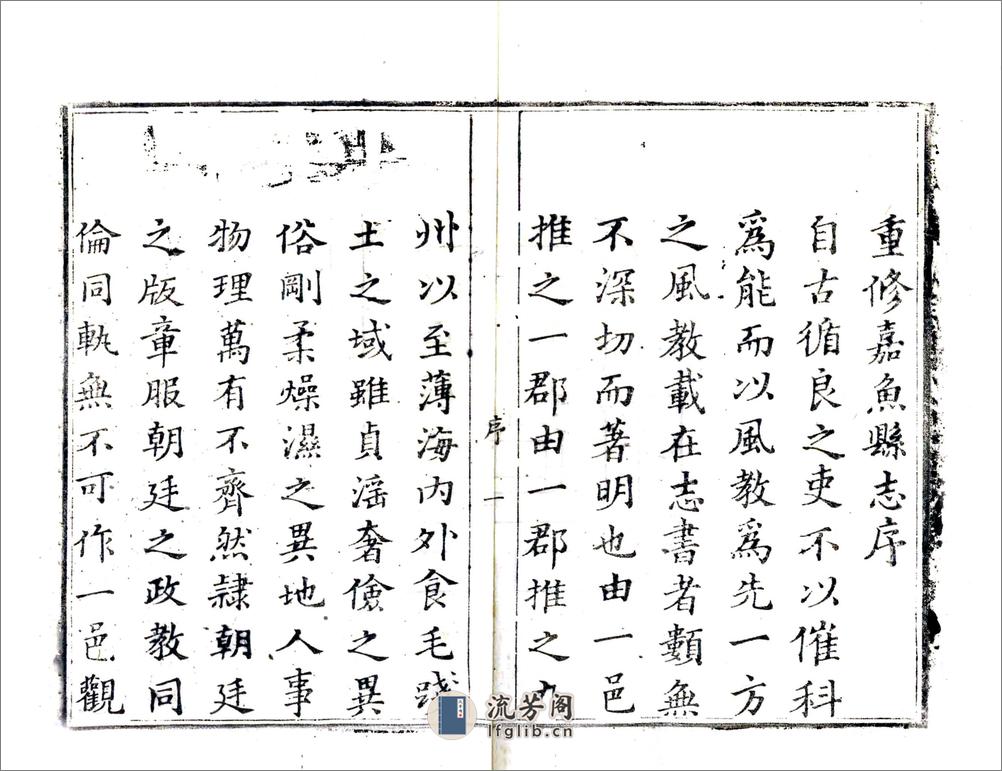 重修嘉魚縣志序
自古循良之吏不以催科
爲能而以風教爲先一方
之風教載在志書者顭無
不深切而著明也由一邑
推之一郡由一郡推之九
序 一
州以至薄海内外食毛踐
土之域雖貞滛奢儉之異
俗剛柔燥濕之異地人事
物理萬有不齊然隸朝廷
之版章服朝廷之政教同
倫同軌無不可作一邑觀
流芳阁
lfglib.cn